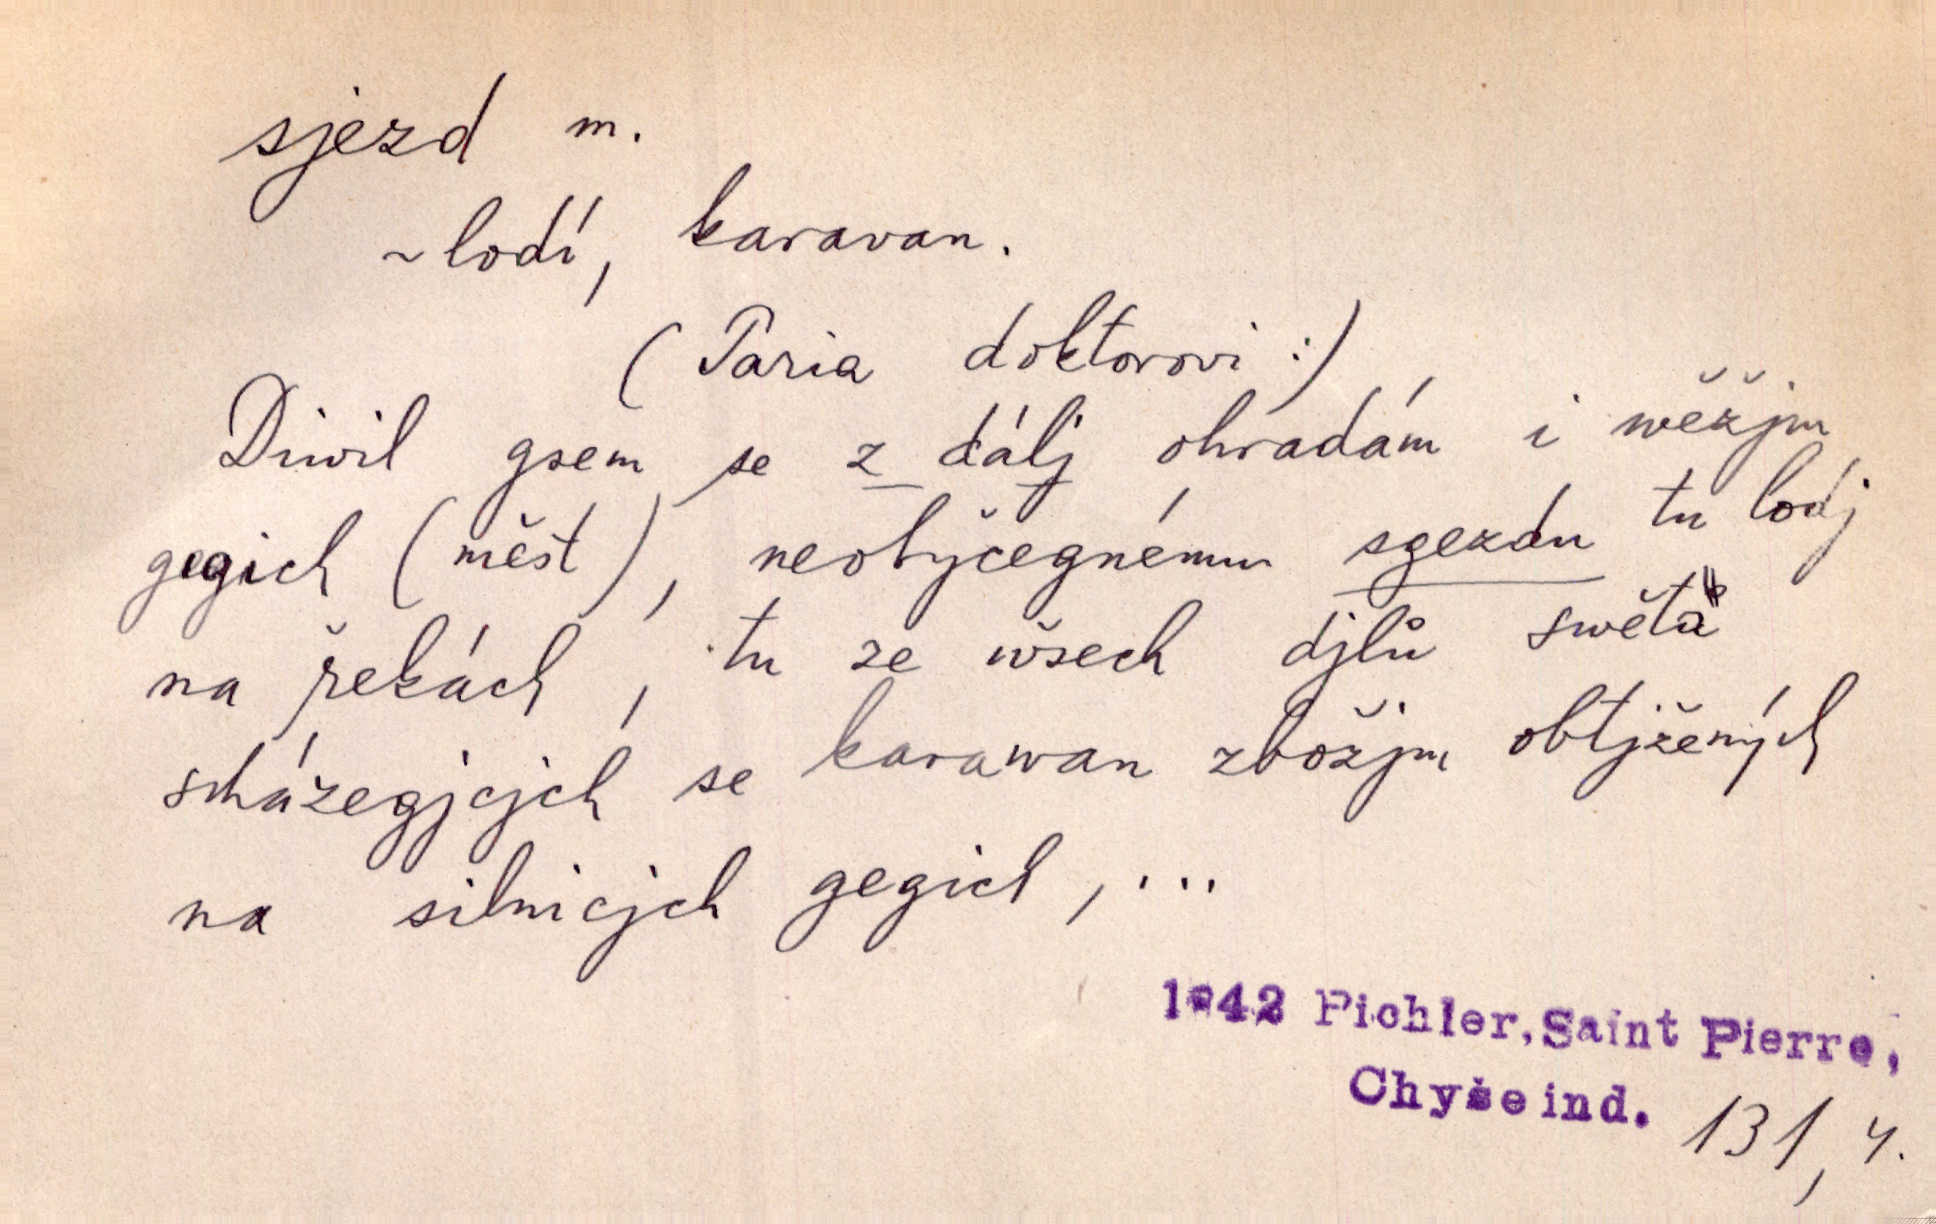 sjezd m.
~ lodí, karavan.
(Paria doktorovi:)
Diwil gsem se z dálj ohradám i wěžjm
gegich (měst), neobyčegnému sgezdu tu lodj
na řekách, tu ze wšech djlů swěta
scházegjcjch se karawan zbožjm obtjžených
na silnicjch gegich, ...
1842 Pichler, Saint Pierre,
Chyše ind. 131, 4.